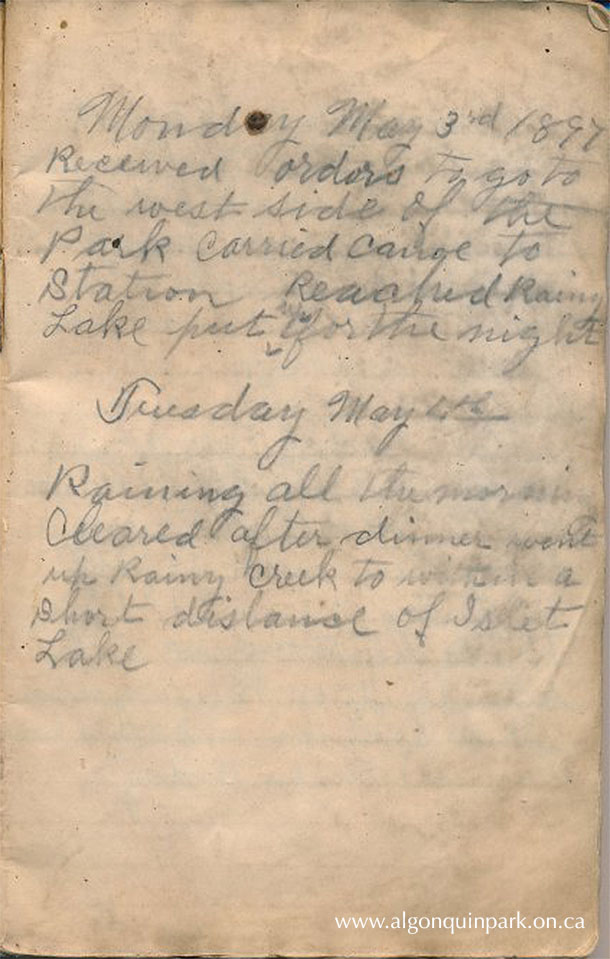 Monday May 3rd 1897
Received orders to go to
the west side of the
Park Carried Canoe to
Station Reached Rainy
Lake put up for the night
Tuesday May 4th
Raining all the morning
Cleared after dinner went
up Rainy Creek to within a
short distance of Islet
Lake
www.algonquinpark.on.ca